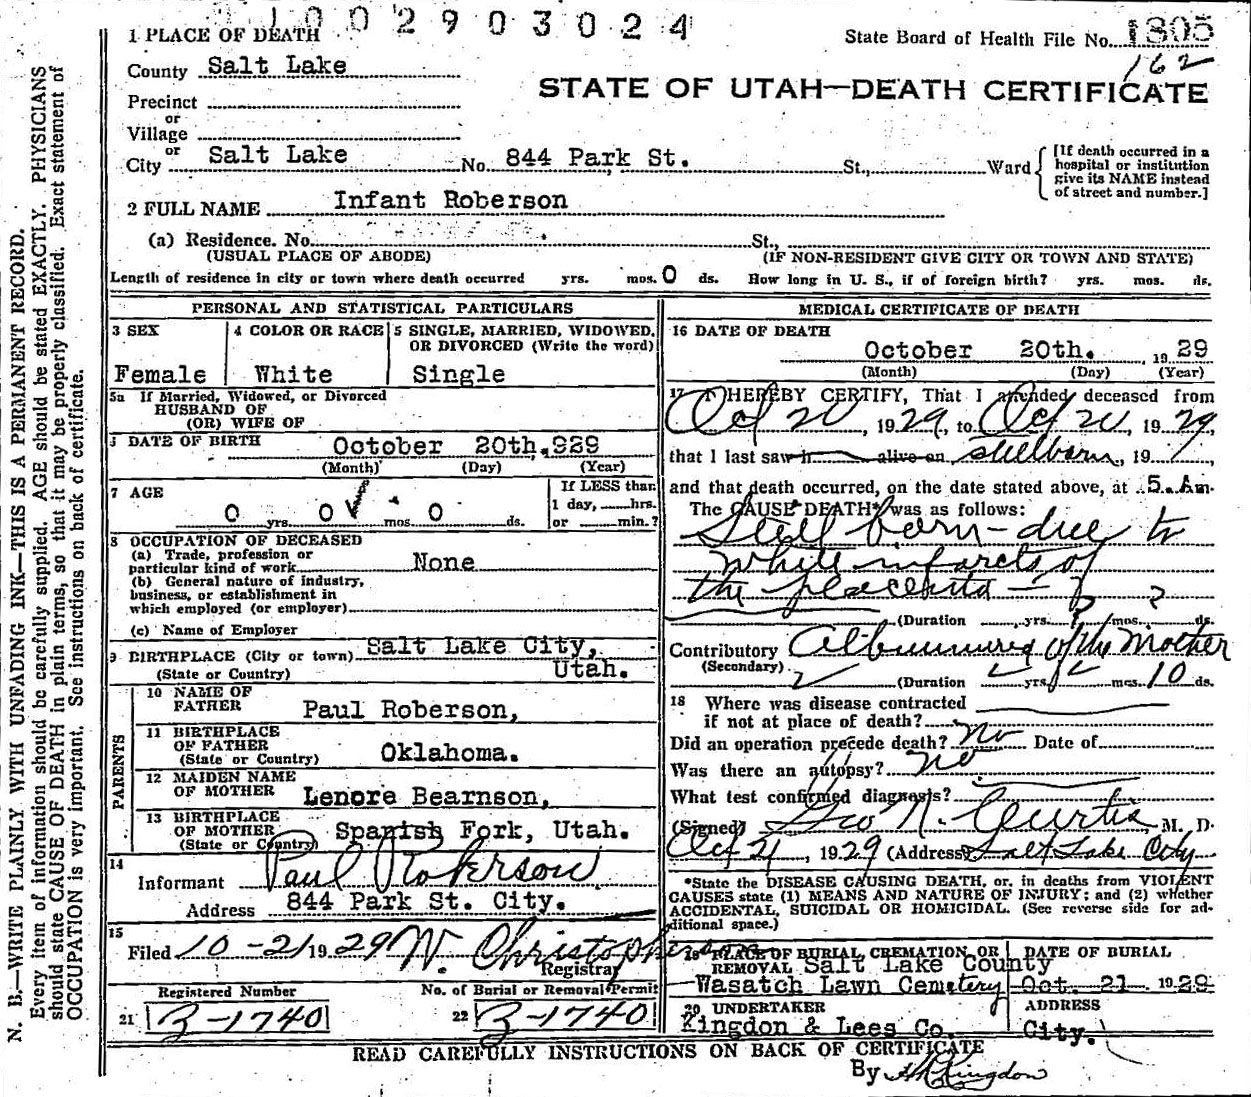 1 0 0 2 9 0 3 0 2 4
1 PLACE OF DEATH
State Board of Health File No. 1805
162
County Salt Lake
STATE OF UTAH—DEATH CERTIFICATE
Precinct
or
Village
or
City Salt Lake No. 844 Park St. St., Ward
[If death occurred in a hospital or institution give its NAME instead of street and number.]
2 FULL NAME Infant Roberson
(a) Residence. No. St.,
(USUAL PLACE OF ABODE) (IF NON-RESIDENT GIVE CITY OR TOWN AND STATE)
Length of residence in city or town where death occurred yrs. mos. 0 ds. How long in U. S., if of foreign birth? yrs. mos. ds.
PERSONAL AND STATISTICAL PARTICULARS
3 SEX
Female
4 COLOR OR RACE
White
5 SINGLE, MARRIED, WIDOWED,
OR DIVORCED (Write the word)
Single
5a If Married, Widowed, or Divorced
HUSBAND OF
(OR) WIFE OF
DATE OF BIRTH October 20th. 929
(Month) (Day) (Year)
7 AGE
0 yrs. 0 mos. 0 ds.
If LESS than
1 day, hrs.
or min.?
8 OCCUPATION OF DECEASED
(a) Trade, profession or
particular kind of work None
(b) General nature of industry,
business, or establishment in
which employed (or employer)
(c) Name of Employer
9 BIRTHPLACE (City or town) Salt Lake City,
(State or Country) Utah.
PARENTS
10 NAME OF
FATHER Paul Roberson,
11 BIRTHPLACE
OF FATHER
(State or Country) Oklahoma.
12 MAIDEN NAME
OF MOTHER Lenore Bearnson,
13 BIRTHPLACE
OF MOTHER
(State or Country) Spanish Fork, Utah.
14
Informant Paul Roberson
Address 844 Park St. City.
15
Filed 10-21 1929 W. Christopherson
Registrar
Registered Number No. of Burial or Removal Permit
21 3-1740 22 3-1740
MEDICAL CERTIFICATE OF DEATH
16 DATE OF DEATH
October 20th. 1929
(Month) (Day) (Year)
17 I HEREBY CERTIFY, That I attended deceased from
Oct 20, 1929, to Oct 20, 1929,
that I last saw h alive on stillborn, 19 ,
and that death occurred, on the date stated above, at 5 A.m.
The CAUSE DEATH* was as follows:
Still born - due to
white infarcts of
the placenta - ?
(Duration yrs. ? mos. ? ds.
Contributory Albuminuria of the Mother
(Secondary)
(Duration yrs. mos. 10 ds.
18 Where was disease contracted
if not at place of death?
Did an operation precede death? No Date of
Was there an autopsy? no
What test confirmed diagnosis?
(Signed) Geo N. Curtis, M. D.
Oct 21, 1929 (Address) Salt Lake City
*State the DISEASE CAUSING DEATH, or, in deaths from VIOLENT
CAUSES state (1) MEANS AND NATURE OF INJURY; and (2) whether
ACCIDENTAL, SUICIDAL OR HOMICIDAL. (See reverse side for ad-
ditional space.)
19 PLACE OF BURIAL, CREMATION, OR
REMOVAL Salt Lake County
Wasatch Lawn Cemetery
DATE OF BURIAL
Oct. 21 1929
20 UNDERTAKER
Kingdon & Lees Co.
ADDRESS
City.
READ CAREFULLY INSTRUCTIONS ON BACK OF CERTIFICATE
By Kingdon
N. B.—WRITE PLAINLY WITH UNFADING INK—THIS IS A PERMANENT RECORD.
Every item of information should be carefully supplied. AGE should be stated EXACTLY. PHYSICIANS
should state CAUSE OF DEATH in plain terms, so that it may be properly classified. Exact statement of
OCCUPATION is very important. See instructions on back of certificate.